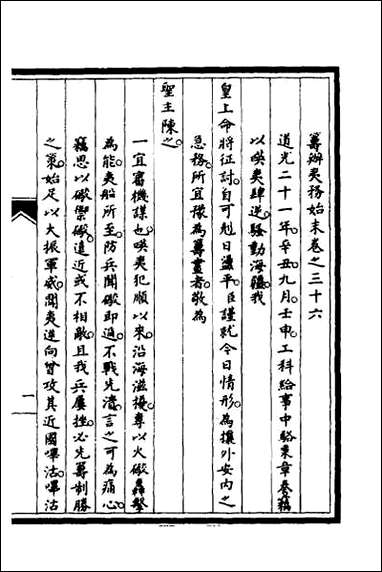 籌辦夷務始末卷之三十六
道光二十一年辛丑九月壬申工科給事中駱秉章奏竊
以㗸夷肆逆騷動海疆我
皇上命將征討自可剋日盪平臣謹就今日情形為攘外安內之
急務所宜豫為籌畫者敬為
聖主陳之
一宜審機謀也㗸夷犯順以來沿海滋擾專以火礮轟擊
為能夷船所至防兵聞礮即退不戰先潰言之可為痛心
竊思以礮禦礮遠近或不相敵且我兵屢挫必先籌制勝
之策始足以大振軍威聞夷逆向曾攻其近國嗶沽嗶沽
一